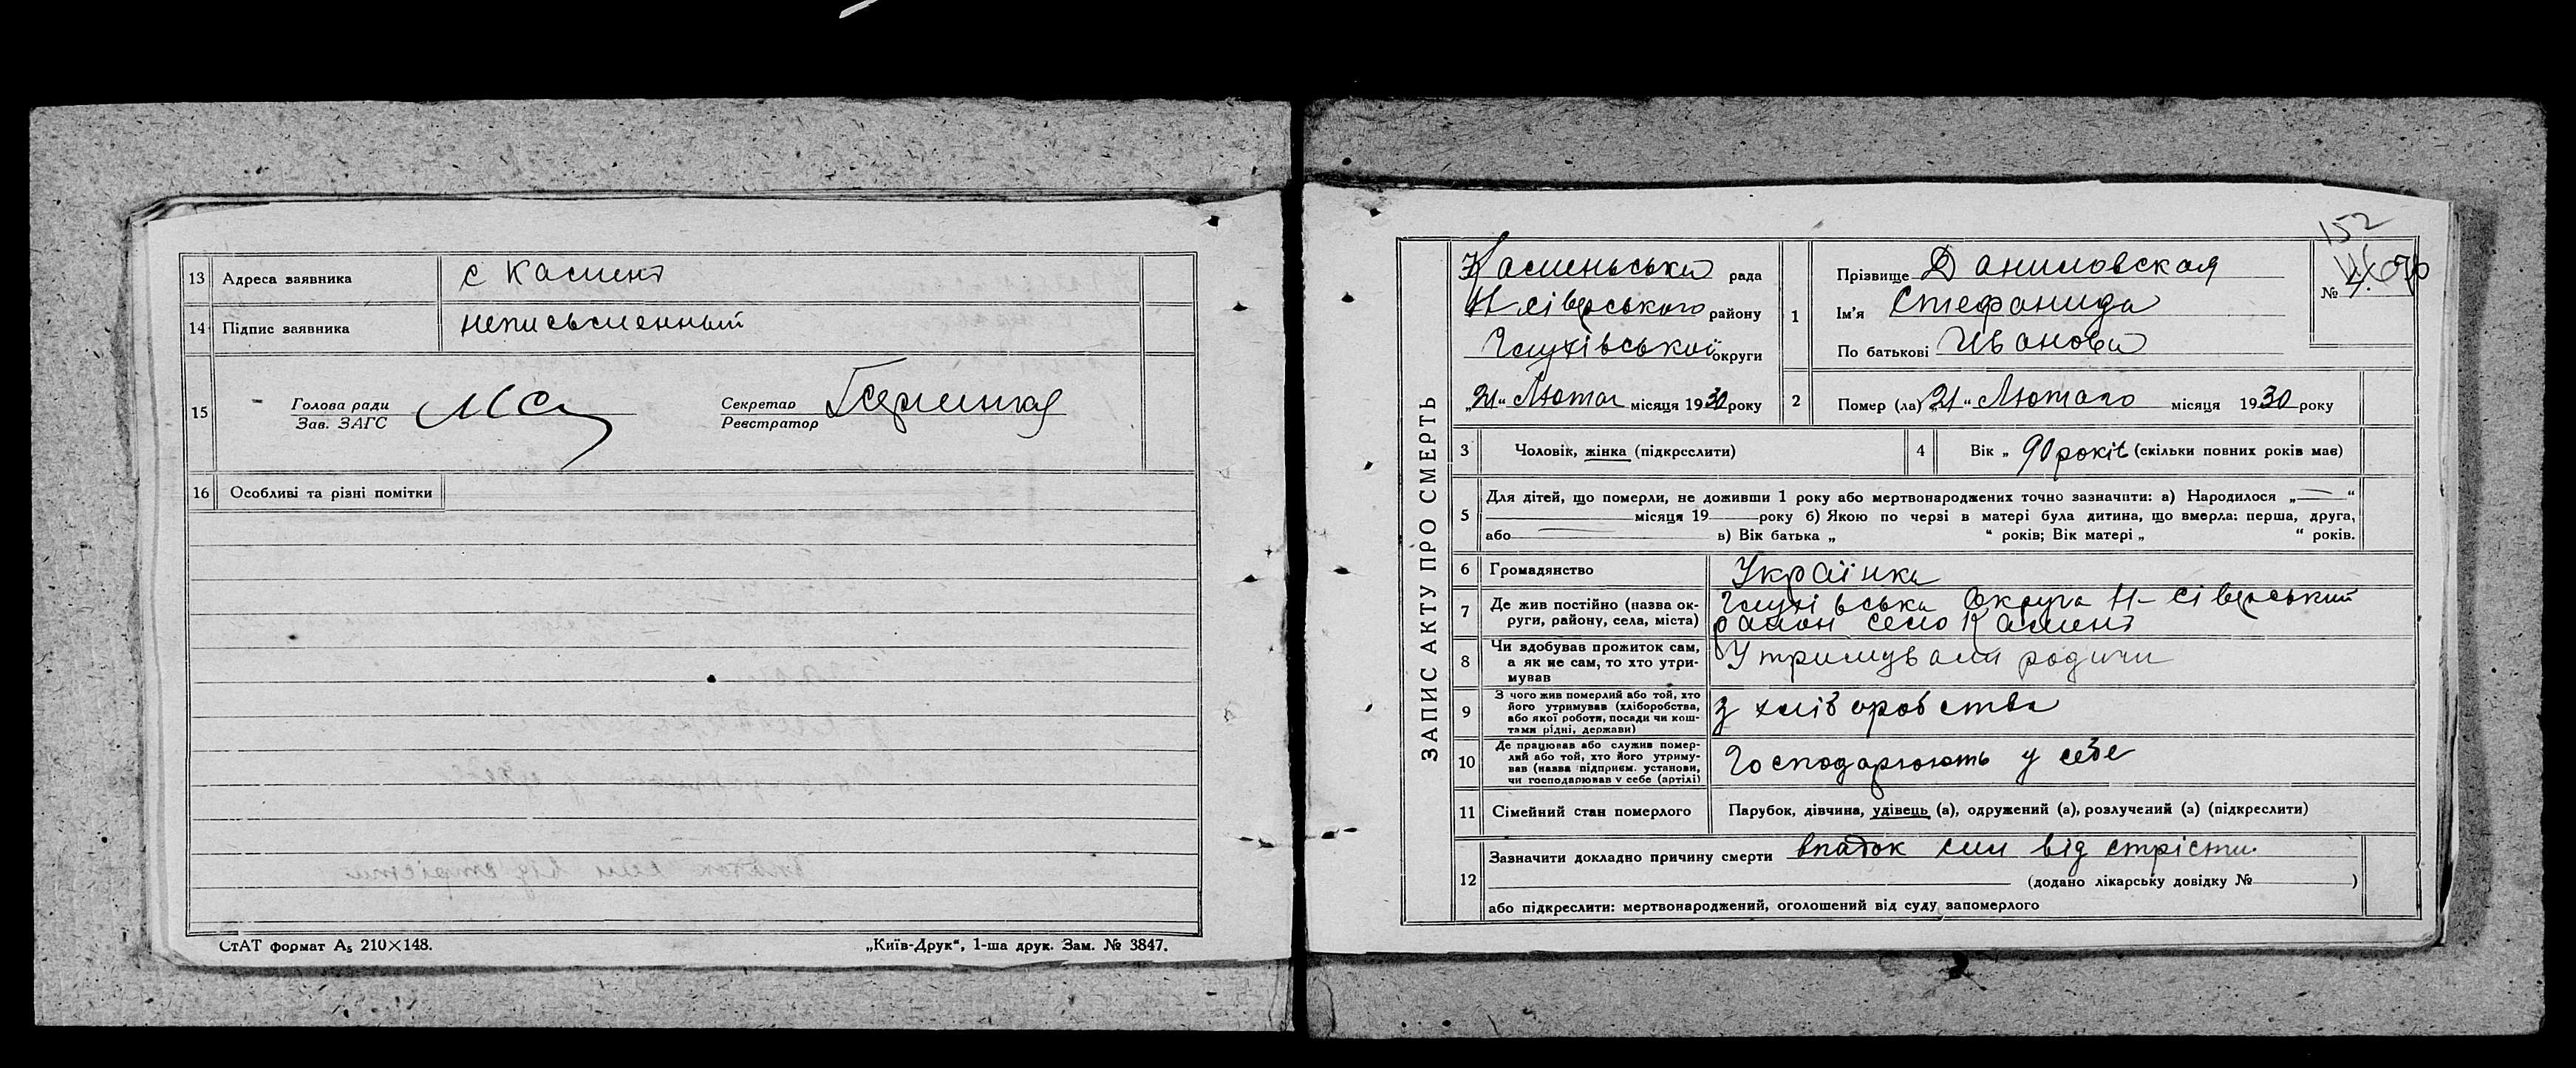 13 Адреса заявника с Камент
14 Підпис заявника неписьменный
15 Голова ради
Зав. ЗАГС
Секретар
Реєстратор
16 Особливі та різні помітки
СтАТ формат А₅ 210×148.
„Київ-Друк“, 1-ша друк. Зам. № 3847.
ЗАПИС АКТУ ПРО СМЕРТЬ
152
№
Каменьська рада
Н сіверського району
Глухівської округи
„21“ Лютаг місяця 1930 року
1 Прізвище Даниловская
Ім'я Стефанида
По батькові Иванова
2 Помер (ла) „21“ Лютаго місяця 1930 року
3 Чоловік, жінка (підкреслити)
4 Вік „ 90 років (скільки повних років мав)
5 Для дітей, що померли, не доживши 1 року або мертвонароджених точно зазначити: а) Народилося „ “
місяця 19 року б) Якою по черзі в матері була дитина, що вмерла: перша, друга,
або в) Вік батька „ “ років; Вік матері „ “ років.
6 Громадянство Українка
7 Де жив постійно (назва ок-
руги, району, села, міста)
Глухівська Округа Н-Сіверський
район село Камент
8 Чи здобував прожиток сам,
а як не сам, то хто утри-
мував
Утримували родичи
9 З чого жив померлий або той, хто
його утримував (хліборобства,
або якої роботи, посади чи кош-
тами рідні, держави)
З хліборобства
10 Де працював або служив помер-
лий або той, хто його утриму-
вав (назва підприєм. установи,
чи господарював у себе (артілі)
Господарюють у себе
11 Сімейний стан померлого Парубок, дівчина, удівець (а), одружений (а), розлучений (а) (підкреслити)
12 Зазначити докладно причину смерти впадок сил від стрісти
(додано лікарську довідку № )
або підкреслити: мертвонароджений, оголошений від суду запомерлого